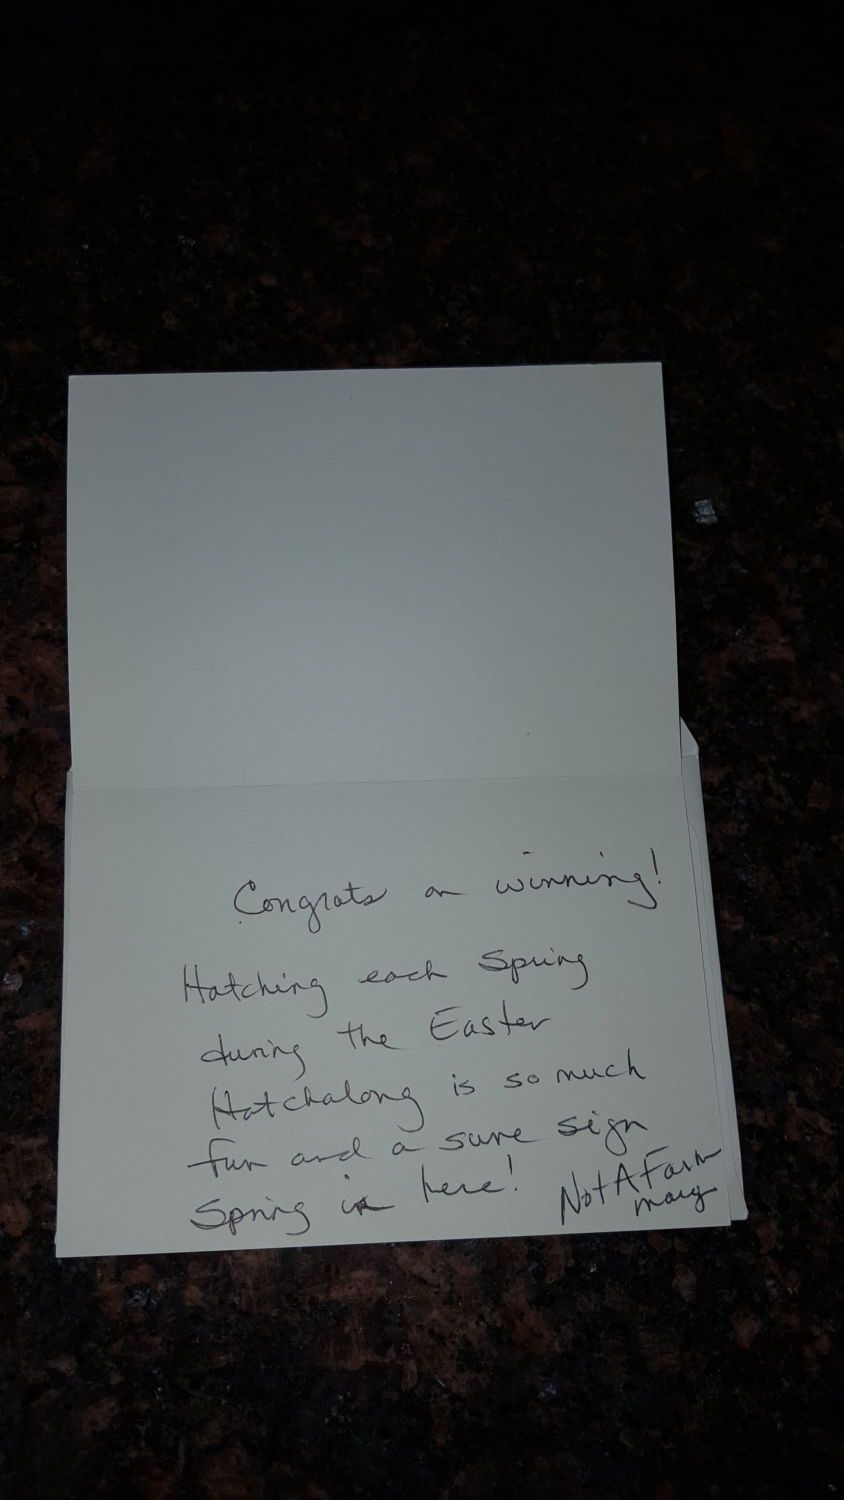 Congrats on winning!
Hatching each Spring
during the Easter
Hatchalong is so much
fun and a sure sign
Spring is here!
NotAFarm
mary